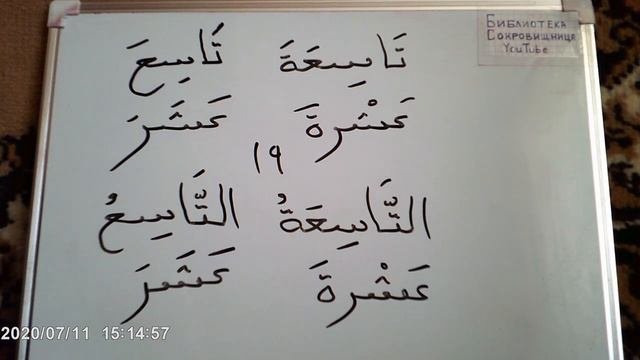 БИБЛИОТЕКА
СОКРОВИЩНИЦА
YouTube
تَاسِعَةَ تَاسِعَ
عَشْرةَ عَشَرَ
١٩
التَّاسِعَةُ التَّاسِعُ
عَشْرةَ عَشَرَ
2020/07/11 15:14:57